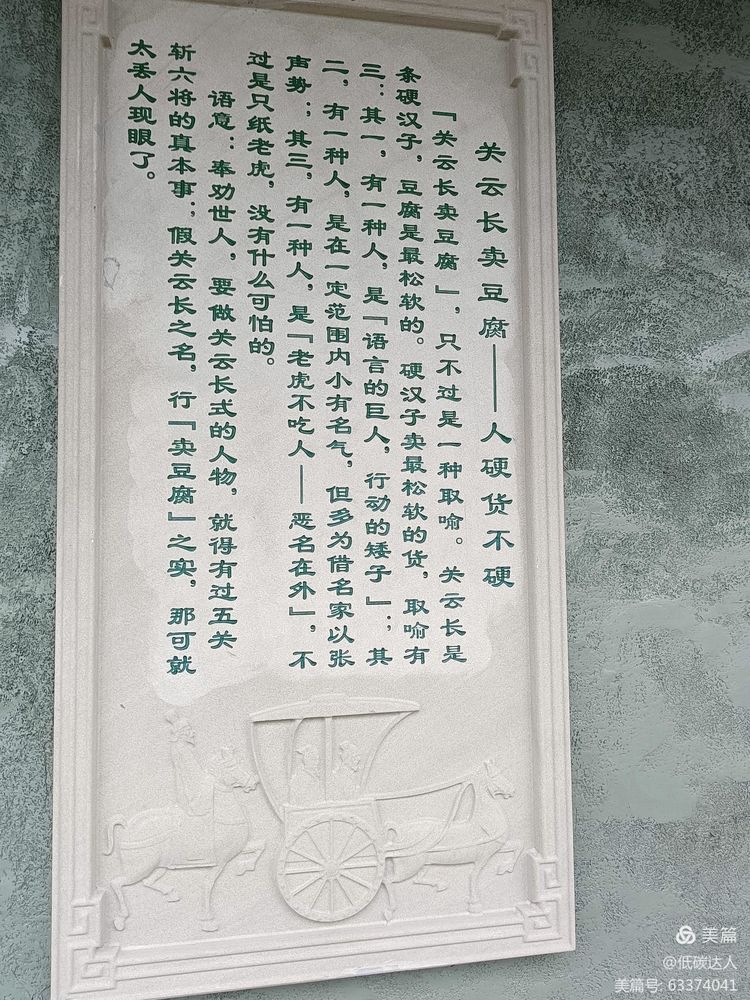 关云长卖豆腐——人硬货不硬
『关云长卖豆腐』，只不过是一种取喻。关云长是
条硬汉子，豆腐是最松软的。硬汉子卖最松软的货，取喻有
三：其一，有一种人，是『语言的巨人，行动的矮子』；其
二，有一种人，是在一定范围内小有名气，但多为借名家以张
声势；其三，有一种人，是『老虎不吃人——恶名在外』，不
过是只纸老虎，没有什么可怕的。
语意：奉劝世人，要做关云长式的人物，就得有过五关
斩六将的真本事；假关云长之名，行『卖豆腐』之实，那可就
太丢人现眼了。
美篇
@低碳达人
美篇号: 63374041